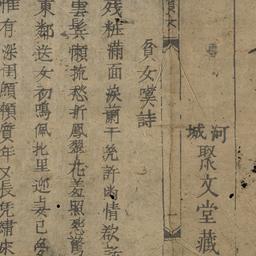 河城
聚文堂藏
貧女嘆詩
残粧滿面淚闌干幾許幽情欲話
雲髻懶梳愁折鳳翠花羞照恐驚
東鄰送女初鳴佩北里迎妻已
惟有深閨顦顇質年又長凭繡床